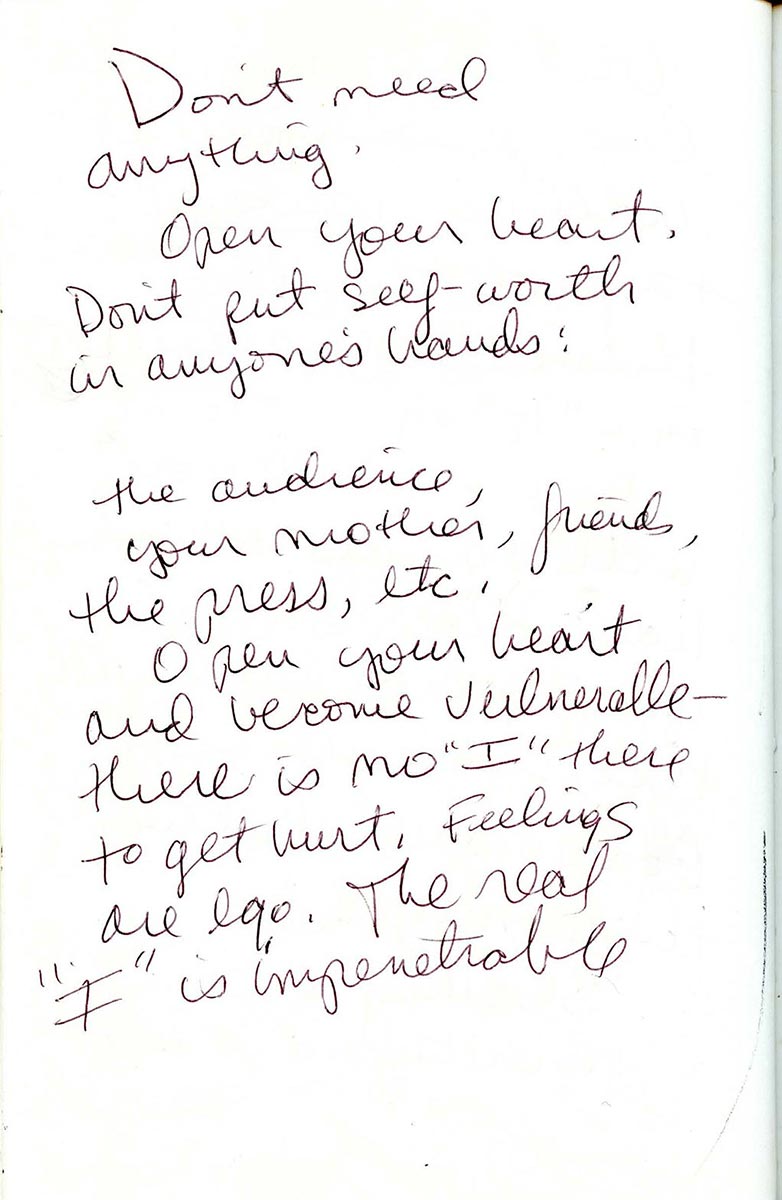 Don't need
anything.
Open your heart.
Don't put self-worth
in anyone's hands:
the audience,
your mother, friends,
the press, etc.
Open your heart
and become vulnerable—
there is no "I" there
to get hurt. Feelings
are ego. The real
"I" is impenetrable